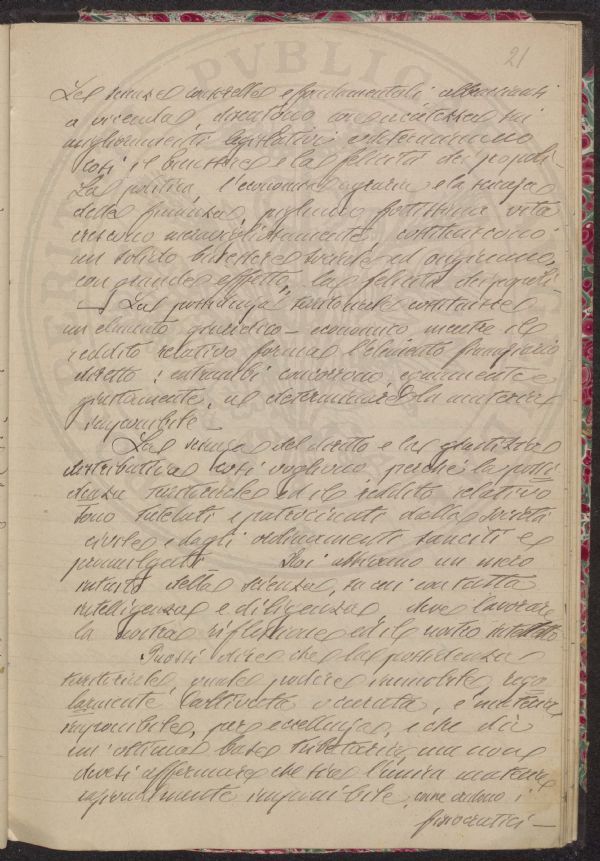 21
Le scienze concrete e fondamentali abbraccianti
a vicenda, discutono con sicatezza sui
miglioramenti legislativi e determinano
così il benessere e la felicità dei popoli.
La politica, l'economia agraria e la scienza
della finanza, pigliano fortissima vita
crescono meravigliosamente, costituiscono
un solido benessere sociale ed angiscono,
con grande effetto, la felicità dei popoli.
La possidenza territoriale costituisce
un elemento giuridico-economico mentre il
reddito relativo forma l'elemento finanziario
diretto: entrambi concorrono, egualmente e
giustamente, a determinare la materia
imponibile.
La scienza del diritto e la giustizia
distributiva così vogliono perché la possi
denza territoriale ed il reddito relativo
sono tutelati e patrocinati dalla società
civile e dagli ordinamenti sanciti e
promulgati. Poi abbiamo un nuovo
intuito della scienza, su cui con tutta
intelligenza e diligenza, deve lavorare
la nostra riflessione ed il nostro intelletto
Puossi dire che la possidenza
territoriale, quale podere immobile, rego
larmente coltivata, è materia
imponibile, per eccellenza, e che dà
un'ottima base tributaria, ma non
devesi affermare che sia l'unica materia
razionalmente imponibile, come credono i
fisiocratici -